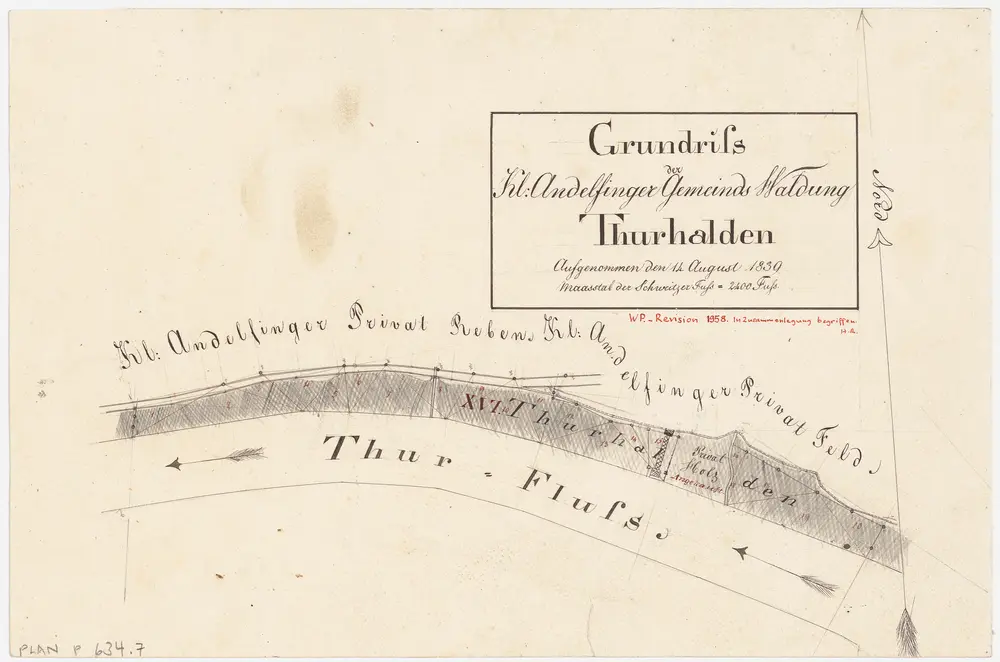 Grundriſs
der
Kl: Andelfinger Gemeinds Waldung
Thurhalden
Aufgenommen den 14 August 1839
Maasstal der Schweitzer Fuſs = 2400 Fuſs.
Nord
WP.-Revision 1958. In Zusammenlegung begriffen.
Kl: Andelfinger Privat Reben. Kl: Andelfinger Privat Feld.
XVI. Thurhalden
Privat
Holz
Angekauft
Thur = Fluſs.
PLAN P 634.7